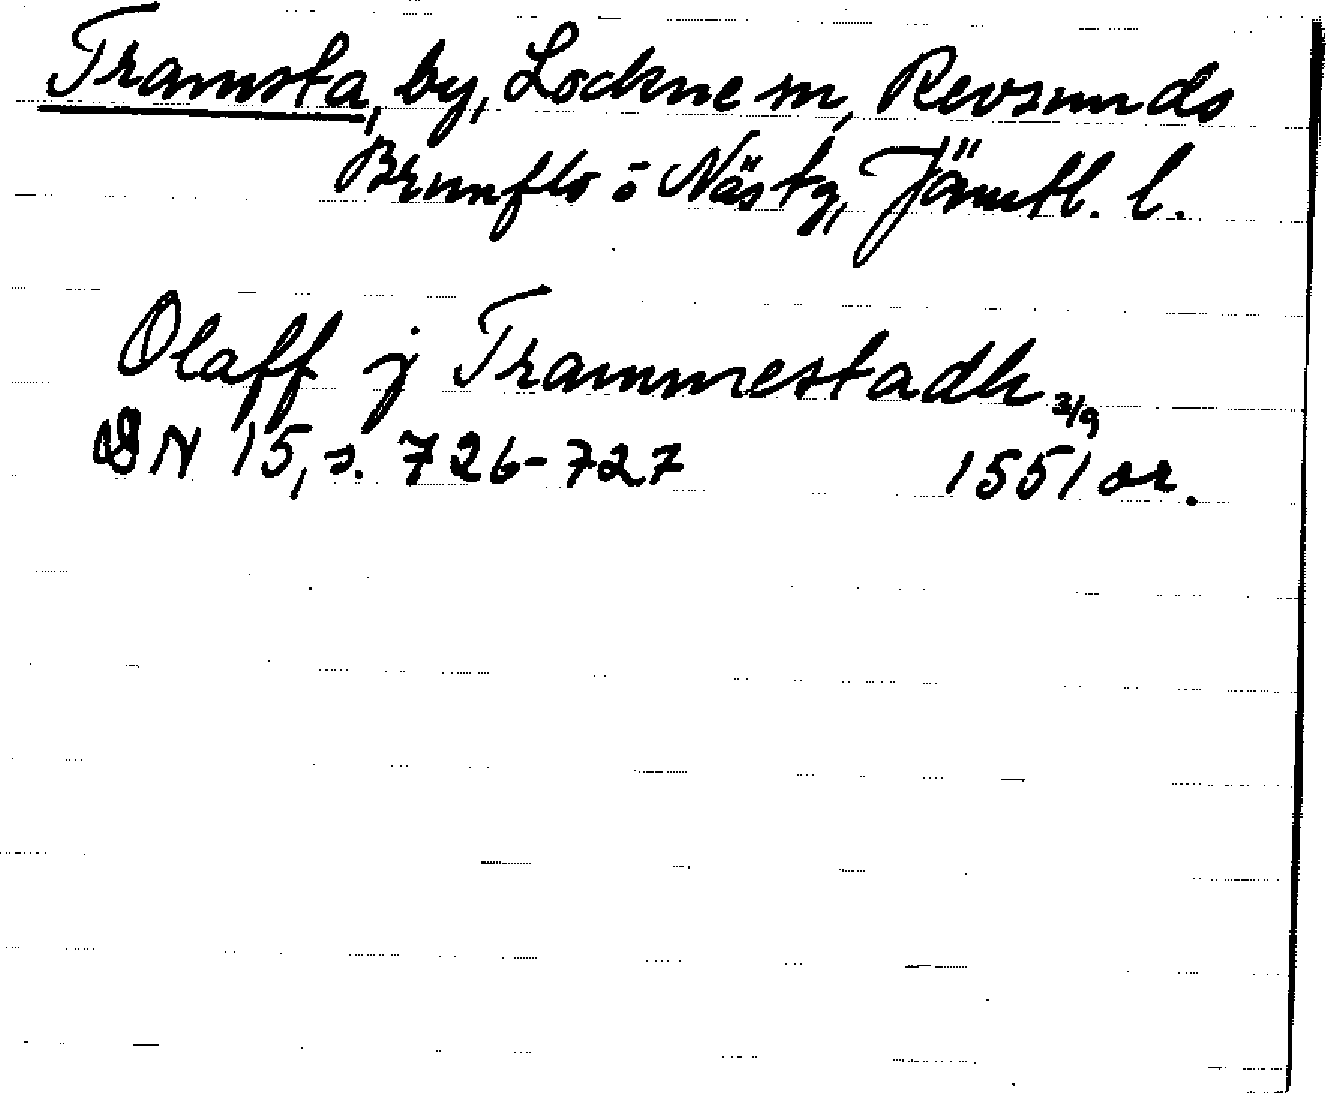 Tramsta, by, Lockne sn, Revsunds
Brunflo o Näs tg, Jämtl. l.
Olaff j Trammestadh 3/9
DN 15, s. 726-727 1551 or.